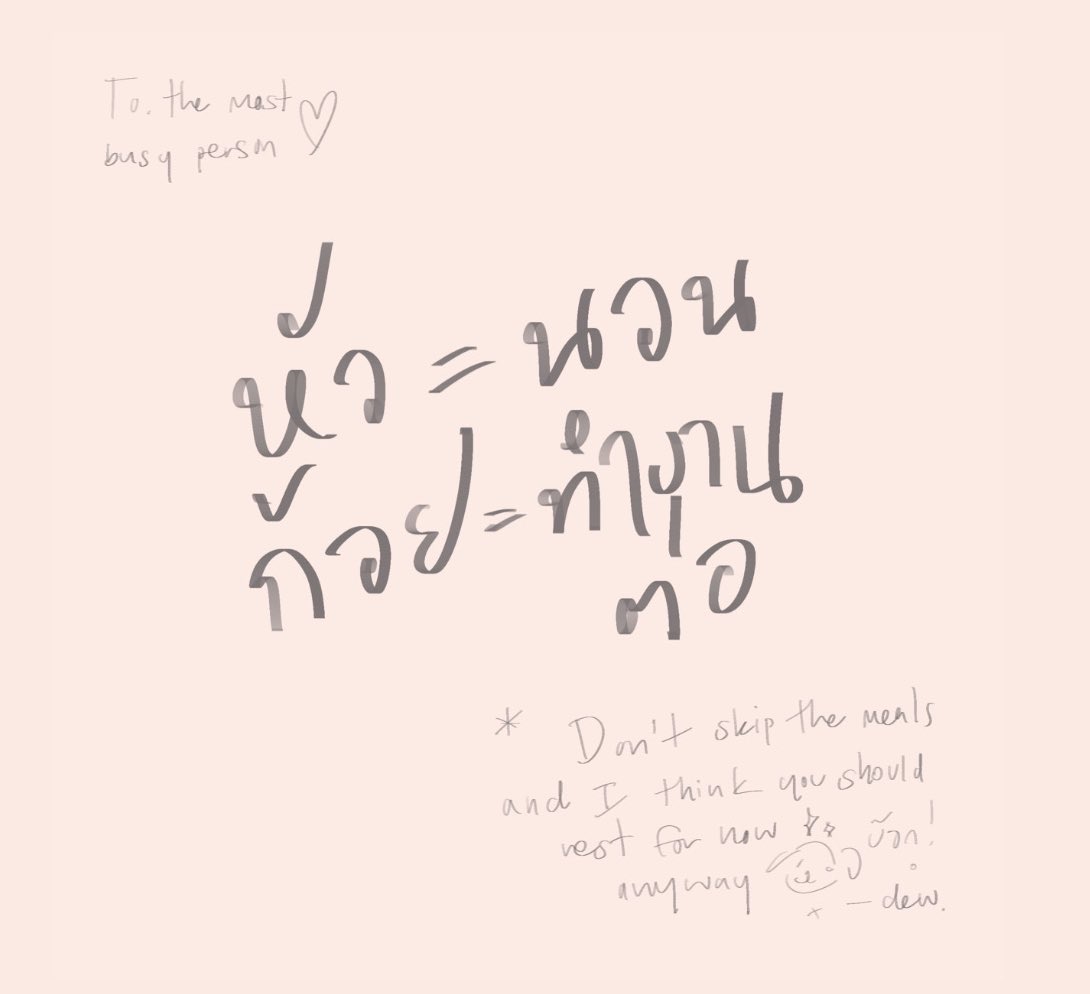 To. the most
busy person
หัว = นวน
ก้วย = ทำงาน
ตอ
* Don't skip the meals
and I think you should
rest for now
anyway
— dew.